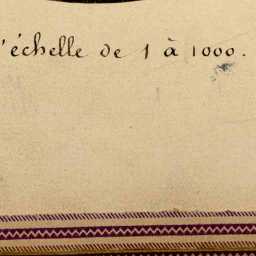 l'échelle de 1 à 1000.